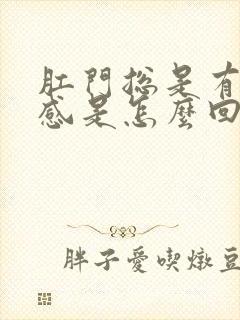 肛門總是有
感是怎麼回
胖子愛喫燉豆